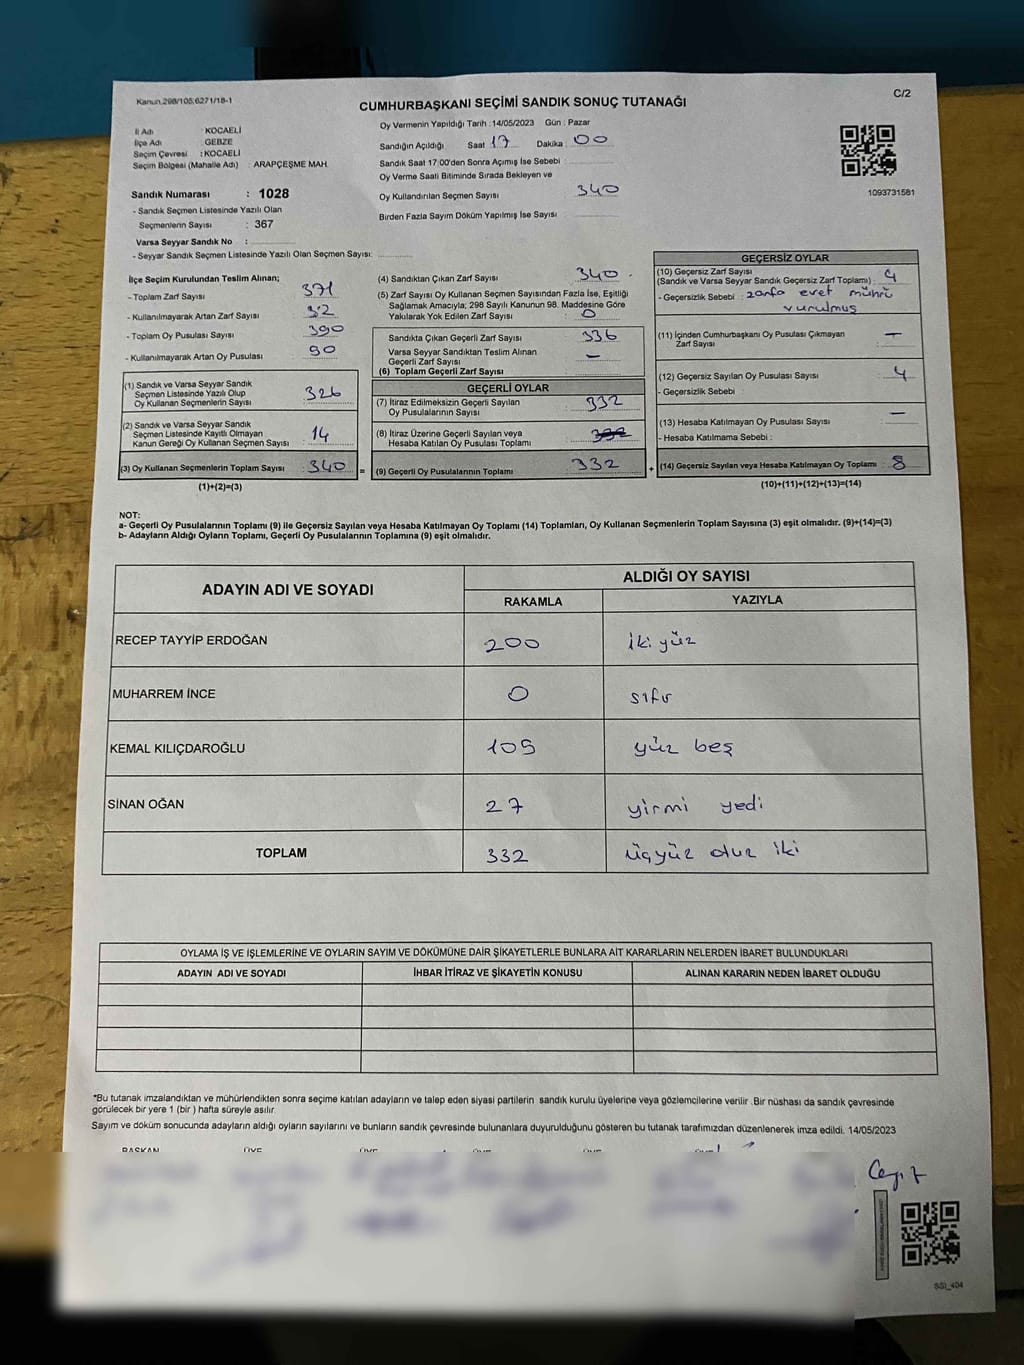 Kanun.298/105,6271/18-1
C/2
CUMHURBAŞKANI SEÇİMİ SANDIK SONUÇ TUTANAĞI
İl Adı : KOCAELİ
İlçe Adı : GEBZE
Seçim Çevresi : KOCAELİ
Seçim Bölgesi (Mahalle Adı) : ARAPÇEŞME MAH.
Sandık Numarası : 1028
- Sandık Seçmen Listesinde Yazılı Olan
Seçmenlerin Sayısı : 367
Varsa Seyyar Sandık No :
- Seyyar Sandık Seçmen Listesinde Yazılı Olan Seçmen Sayısı:
Oy Vermenin Yapıldığı Tarih :14/05/2023 Gün : Pazar
Sandığın Açıldığı Saat 17 Dakika 00
Sandık Saat 17:00'den Sonra Açımış İse Sebebi :
Oy Verme Saati Bitiminde Sırada Bekleyen ve
Oy Kullandırılan Seçmen Sayısı 340
Birden Fazla Sayım Döküm Yapılmış İse Sayısı
1093731581
İlçe Seçim Kurulundan Teslim Alınan;
- Toplam Zarf Sayısı 371
- Kullanılmayarak Artan Zarf Sayısı 32
- Toplam Oy Pusulası Sayısı 390
- Kullanılmayarak Artan Oy Pusulası 50
(1) Sandık ve Varsa Seyyar Sandık
Seçmen Listesinde Yazılı Olup
Oy Kullanan Seçmenlerin Sayısı 326
(2) Sandık ve Varsa Seyyar Sandık
Seçmen Listesinde Kayıtlı Olmayan
Kanun Gereği Oy Kullanan Seçmen Sayısı 14
(3) Oy Kullanan Seçmenlerin Toplam Sayısı 340 =
(1)+(2)=(3)
(4) Sandıktan Çıkan Zarf Sayısı 340
(5) Zarf Sayısı Oy Kullanan Seçmen Sayısından Fazla İse, Eşitliği
Sağlamak Amacıyla; 298 Sayılı Kanunun 98. Maddesine Göre
Yakılarak Yok Edilen Zarf Sayısı : 0
Sandıkta Çıkan Geçerli Zarf Sayısı 336
Varsa Seyyar Sandıktan Teslim Alınan
Geçerli Zarf Sayısı –
(6) Toplam Geçerli Zarf Sayısı :
GEÇERLİ OYLAR
(7) İtiraz Edilmeksizin Geçerli Sayılan
Oy Pusulalarının Sayısı 332
(8) İtiraz Üzerine Geçerli Sayılan veya
Hesaba Katılan Oy Pusulası Toplamı
(9) Geçerli Oy Pusulalarının Toplamı 332 +
GEÇERSİZ OYLAR
(10) Geçersiz Zarf Sayısı
(Sandık ve Varsa Seyyar Sandık Geçersiz Zarf Toplamı) : 4
- Geçersizlik Sebebi : zarfa evet mührü
vurulmuş
(11) İçinden Cumhurbaşkanı Oy Pusulası Çıkmayan
Zarf Sayısı –
(12) Geçersiz Sayılan Oy Pusulası Sayısı 4
- Geçersizlik Sebebi :
(13) Hesaba Katılmayan Oy Pusulası Sayısı –
- Hesaba Katılmama Sebebi :
(14) Geçersiz Sayılan veya Hesaba Katılmayan Oy Toplamı 8
(10)+(11)+(12)+(13)=(14)
NOT:
a- Geçerli Oy Pusulalarının Toplamı (9) ile Geçersiz Sayılan veya Hesaba Katılmayan Oy Toplamı (14) Toplamları, Oy Kullanan Seçmenlerin Toplam Sayısına (3) eşit olmalıdır. (9)+(14)=(3)
b- Adayların Aldığı Oyların Toplamı, Geçerli Oy Pusulalarının Toplamına (9) eşit olmalıdır.
ADAYIN ADI VE SOYADI
ALDIĞI OY SAYISI
RAKAMLA YAZIYLA
RECEP TAYYİP ERDOĞAN 200 iki yüz
MUHARREM İNCE 0 sıfır
KEMAL KILIÇDAROĞLU 105 yüz beş
SİNAN OĞAN 27 yirmi yedi
TOPLAM 332 üçyüz otuz iki
OYLAMA İŞ VE İŞLEMLERİNE VE OYLARIN SAYIM VE DÖKÜMÜNE DAİR ŞİKAYETLERLE BUNLARA AİT KARARLARIN NELERDEN İBARET BULUNDUKLARI
ADAYIN ADI VE SOYADI İHBAR İTİRAZ VE ŞİKAYETİN KONUSU ALINAN KARARIN NEDEN İBARET OLDUĞU
*Bu tutanak imzalandıktan ve mühürlendikten sonra seçime katılan adayların ve talep eden siyasi partilerin sandık kurulu üyelerine veya gözlemcilerine verilir .Bir nüshası da sandık çevresinde
görülecek bir yere 1 (bir ) hafta süreyle asılır.
Sayım ve döküm sonucunda adayların aldığı oyların sayılarını ve bunların sandık çevresinde bulunanlara duyurulduğunu gösteren bu tutanak tarafımızdan düzenlenerek imza edildi. 14/05/2023
BAŞKAN ÜYE ÜYE
SSI_404